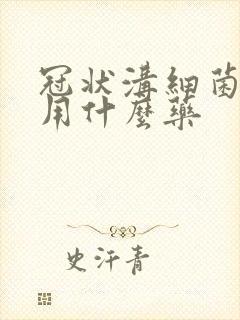 冠状溝細菌
用什麼藥
史汗青